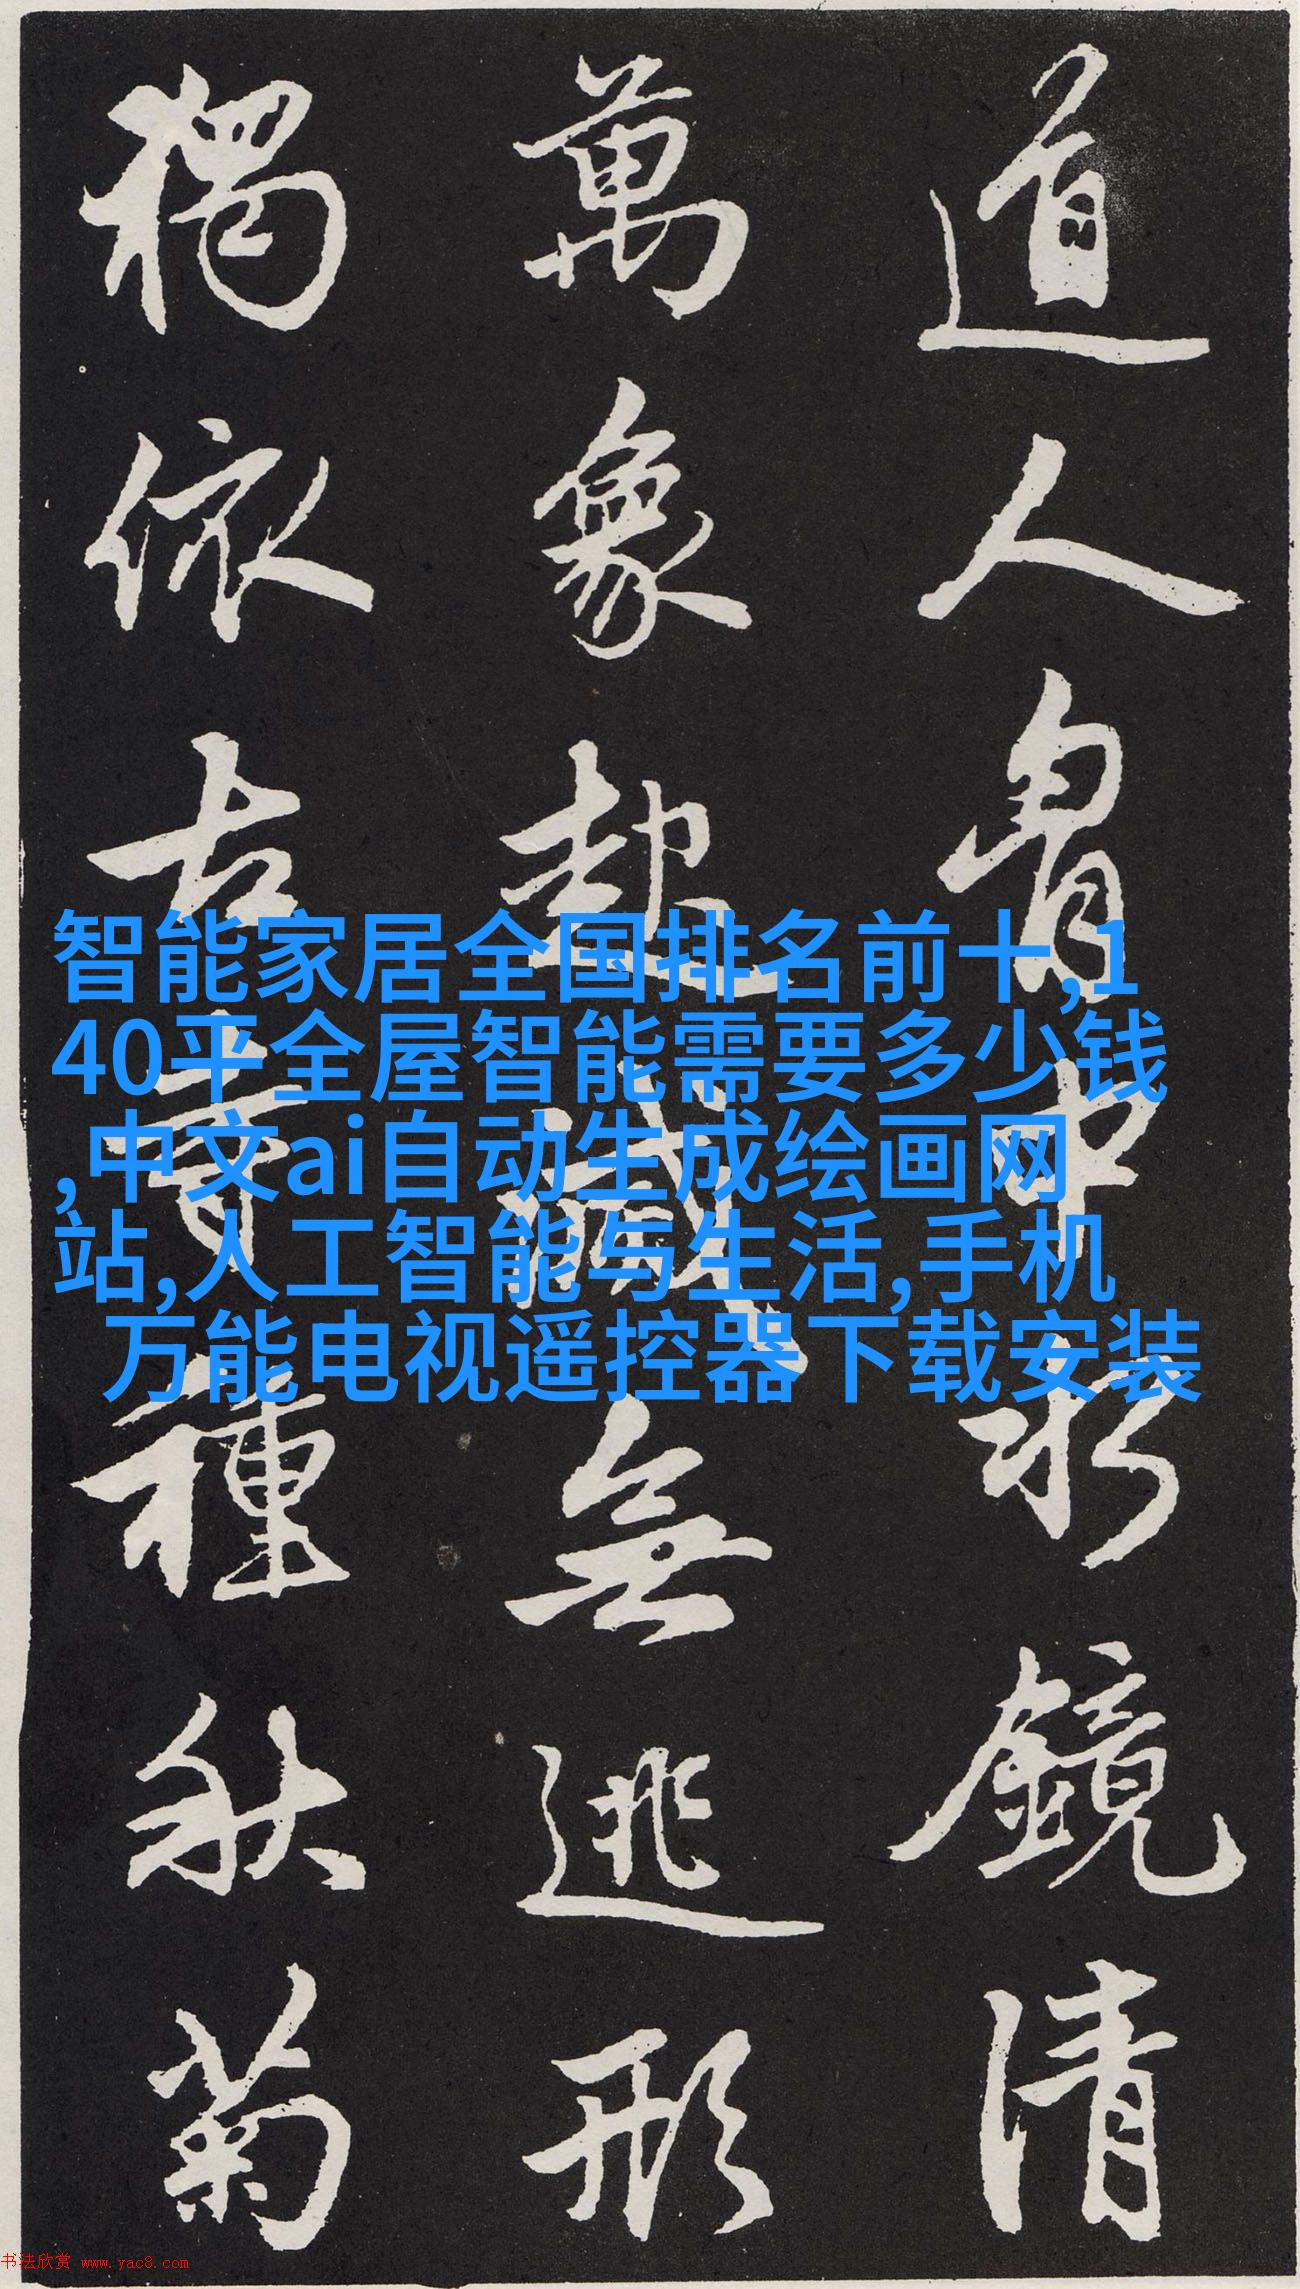 道人胷中水鏡清
萬象起滅無逃形
獨依古寺種秋菊
智能家居全国排名前十,1
40平全屋智能需要多少钱
,中文ai自动生成绘画网
站,人工智能与生活,手机
万能电视遥控器下载安装
书法欣赏 www.yac8.com